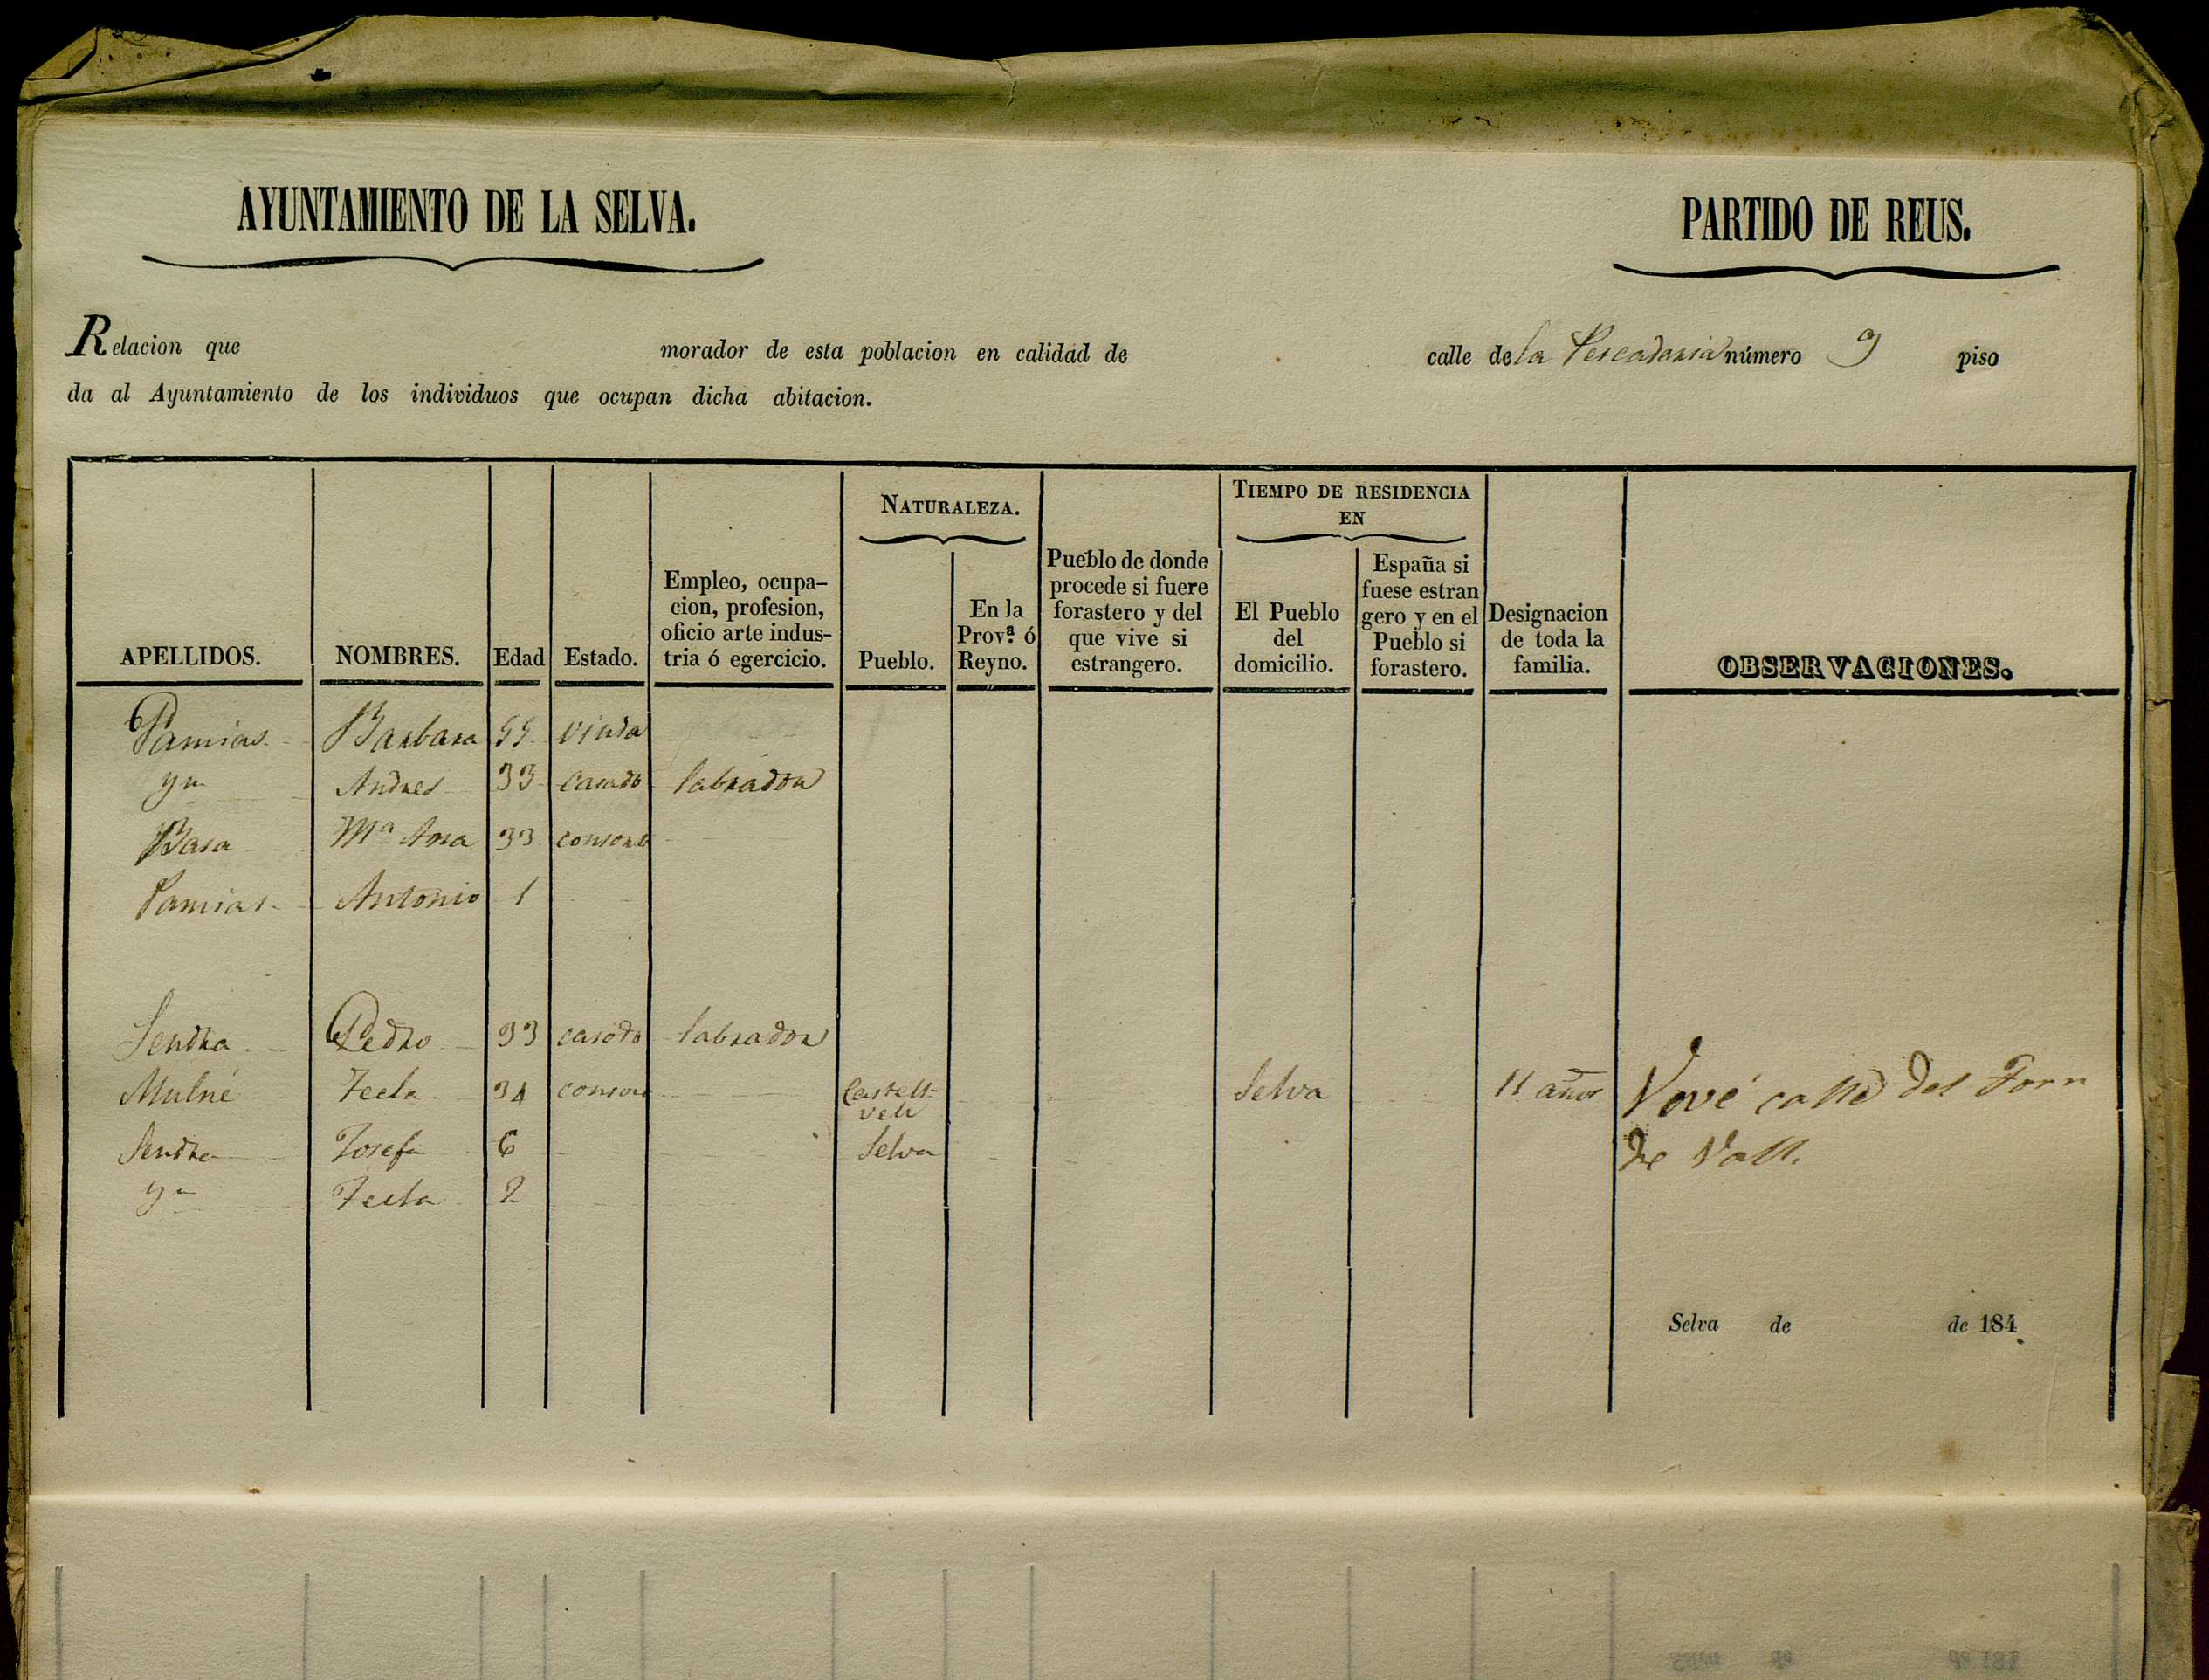 AYUNTAMIENTO DE LA SELVA.
PARTIDO DE REUS.
Relacion que morador de esta poblacion en calidad de calle de la Pescadoria número 9 piso
da al Ayuntamiento de los individuos que ocupan dicha abitacion.
APELLIDOS.
NOMBRES.
Edad
Estado.
Empleo, ocupa-
cion, profesion,
oficio arte indus-
tria ó egercicio.
NATURALEZA.
Pueblo.
En la
Prov.ª ó
Reyno.
Pueblo de donde
procede si fuere
forastero y del
que vive si
estrangero.
TIEMPO DE RESIDENCIA
EN
El Pueblo
del
domicilio.
España si
fuese estran
gero y en el
Pueblo si
forastero.
Designacion
de toda la
familia.
OBSERVACIONES.
Pamias Barbara 55 viuda
yn Andres 33 casado labrador
Basa Mª Ana 33 consort
Pamias Antonio 1
Sendra Pedro 33 casado labrador
Mulné Tecla 34 consort Castell- Selva 11 años
vell
Sendra Josefa 6 Selva
yn Tecla 2
calle del Forn
de Vall.
Selva de de 184